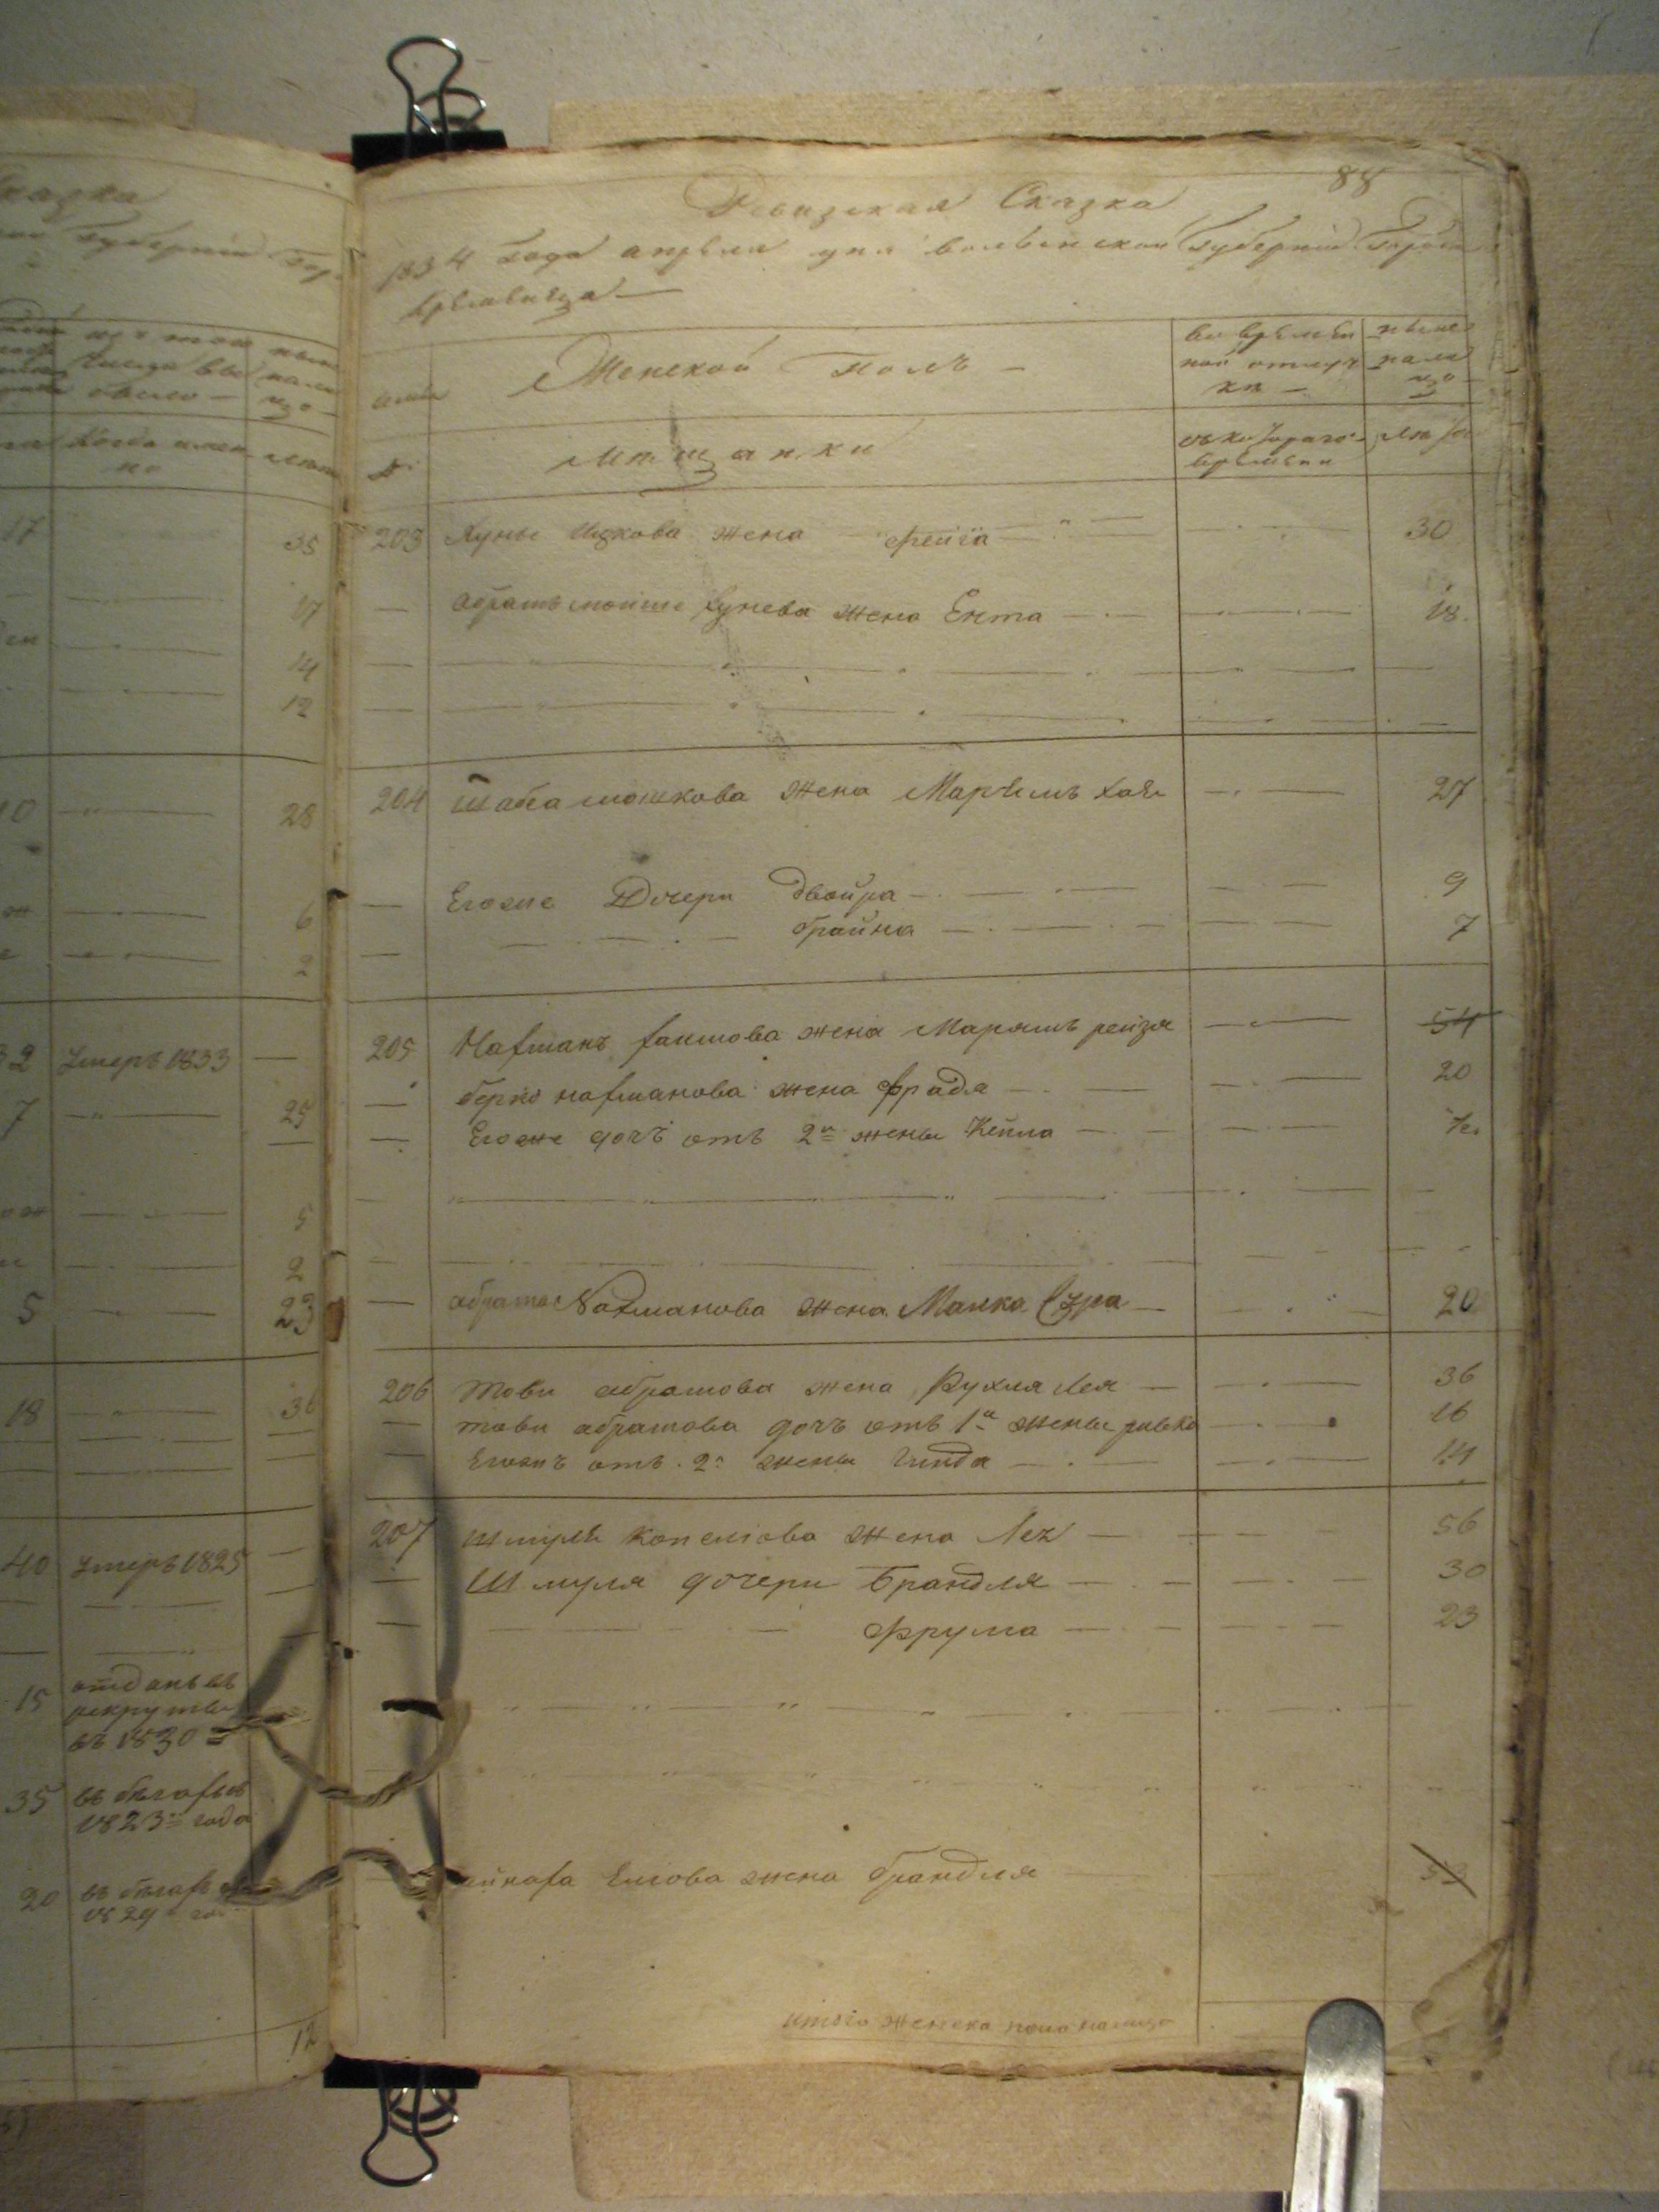 88
Ревизская Сказка
1834 года апреля дня волынской Губернии Города
Кременца
Женской полъ
во времен
ной отлуч
ке
ныне
нали
цо
Мещанки
съ которого
времени
лета
203 Хуны Ицкова жена фейга 30
Абрамъ мойше хунева жена Ента 18
204 Шабса мошкова жена Марьямъ хая 27
Егоже Дочери двойра 9
брайна 7
205 Нафманъ хаимова жена Марямъ рейзя 54
берко нафманова жена фрадя 20
Егоже дочь отъ 2й жены Кейла
абрама Нахманова жена Малка Сура 20
206 Тови абрамова жена Рухля лея 36
тови абрамова дочь отъ 1й жены ривка 16
отъ 2й жены Гинда 14
207 шмуля копелiова жена Лея 56
Шмуля дочери Брандля 30
Фрума 23
Елiова жена брандля
итого женска пола налицо
Сказка
Губернии Гор
изъ того
числа вы
было
ныне
нали
цо
Когда имен
но
лета
17 35
17
14
12
10 28
6
2
32 Умеръ 1833
7 25
5
2
5 23
18 36
40 Умеръ 1825
15 отданъ въ
рекруты
въ 1830
35 въ бегахъ съ
1823го года
20 въ бегахъ съ
1829 го
12